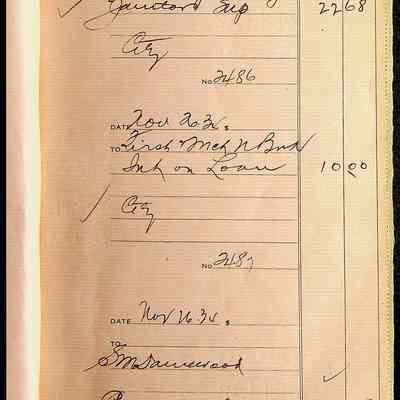 Janitors Sup 22 68
City
No. 2486
DATE Nov 26 34 $
TO First Mech N Bank
Int on Loan 10 00
City
No. 2487
DATE Nov 26 34 $
TO